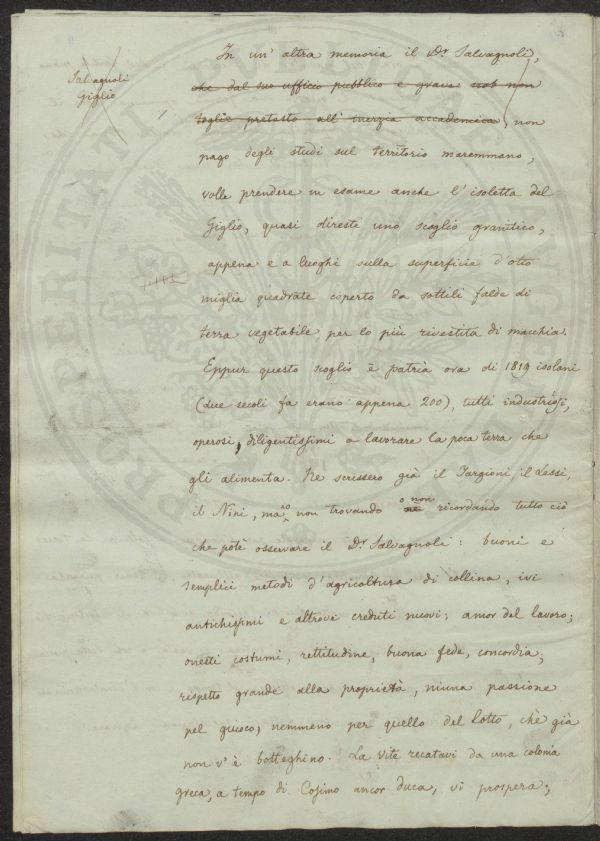 In un' altra memoria il Dr Salvagnoli,
Salvagnoli
Giglio
che dal suo ufficio pubblico e grave non
toglie pretesto all' inerzia accademica, non
pago degli studi sul territorio maremmano,
volle prendere in esame anche l'isoletta del
Giglio, quasi direste uno scoglio granitico,
appena e a luoghi sulla superficie d'otto
miglia quadrate coperto da sottili falde di
terra vegetabile per lo più rivestita di macchia.
Eppur questo scoglio è patria ora di 1819 isolani
(due secoli fa erano appena 200), tutti industriosi,
operosi, diligentissimi a lavorare la poca terra che
gli alimenta. Ne scrissero già il Targioni, il
il Nini, ma non trovando o non ricordando tutto ciò
che potè osservare il Dr Salvagnoli: buoni e
semplici metodi d'agricoltura di collina, ivi
antichissimi e altrove creduti nuovi; amor del lavoro;
onesti costumi, rettitudine, buona fede, concordia,
rispetto grande alla proprietà, niuna passione
pel giuoco, nemmeno per quello del Lotto, chè già
non v'è botteghino. La vite recatavi da una colonia
greca, a tempo di Cosimo ancor duca, vi prospera;
PROSPERITATI